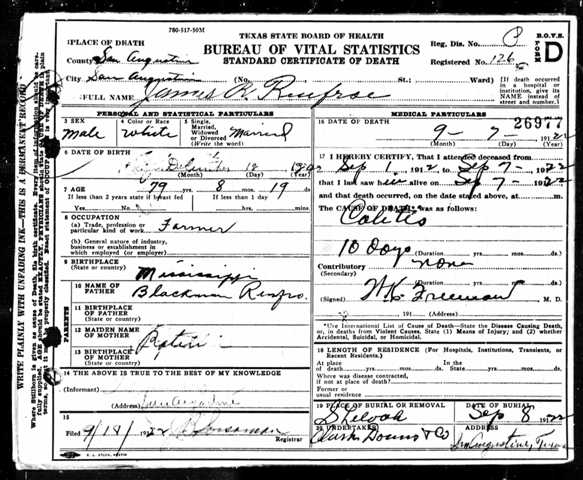 780-517-50M
TEXAS STATE BOARD OF HEALTH
BUREAU OF VITAL STATISTICS
STANDARD CERTIFICATE OF DEATH
Reg. Dis. No.
Registered No. 126
B.O.V.S.
FORM D
PLACE OF DEATH
County San Augustine
City San Augustine (No. St.; Ward)
[If death occurred in a hospital or institution, give its NAME instead of street and number.]
FULL NAME James R. Renfroe
WRITE PLAINLY WITH UNFADING INK—THIS IS A PERMANENT RECORD
PERSONAL AND STATISTICAL PARTICULARS
3 SEX
Male
4 Color or Race
White
5 Single, Married, Widowed or Divorced (Write the word)
Married
6 DATE OF BIRTH
(Month) (Day) (Year)
7 AGE
79 yrs. 8 mos. 19 ds.
If less than 2 years state if breast fed
If less than 1 day
8 OCCUPATION
(a) Trade, profession or particular kind of work Farmer
(b) General nature of industry, business or establishment in which employed (or employer)
9 BIRTHPLACE
(State or country) Mississippi
PARENTS
10 NAME OF FATHER Blackman Renfro.
11 BIRTHPLACE OF FATHER
(State or country)
12 MAIDEN NAME OF MOTHER
13 BIRTHPLACE OF MOTHER
(State or country)
14 THE ABOVE IS TRUE TO THE BEST OF MY KNOWLEDGE
(Informant)
(Address) San Augustine
15
Filed 9/18/ 1922
Registrar
MEDICAL PARTICULARS
16 DATE OF DEATH
26977
9 - 7 - 1922
(Month) (Day) (Year)
17 I HEREBY CERTIFY, That I attended deceased from
Sep 1, 1922 to Sep 7 - 1922
that I last saw him alive on Sep 7 - 1922
and that death occurred, on the date stated above, at m.
The CAUSE OF DEATH was as follows:
Colitis
10 days (Duration yrs. mos. ds.)
Contributory none
(Secondary)
(Duration yrs. mos. ds.)
(Signed) Freeman M. D.
191 (Address)
*Use International List of Cause of Death—State the Disease Causing Death, or, in deaths from Violent Causes, State (1) Means of Injury; and (2) whether Accidental, Suicidal, or Homicidal.
18 LENGTH OF RESIDENCE (For Hospitals, Institutions, Transients, or Recent Residents.)
At place of death yrs. mos. ds. In the State yrs. mos. ds.
Where was disease contracted, if not at place of death?
Former or usual residence
19 PLACE OF BURIAL OR REMOVAL
DATE OF BURIAL
Sep 8 1922
20 UNDERTAKER
Clark Downs & Co
ADDRESS
San Augustine, Texas